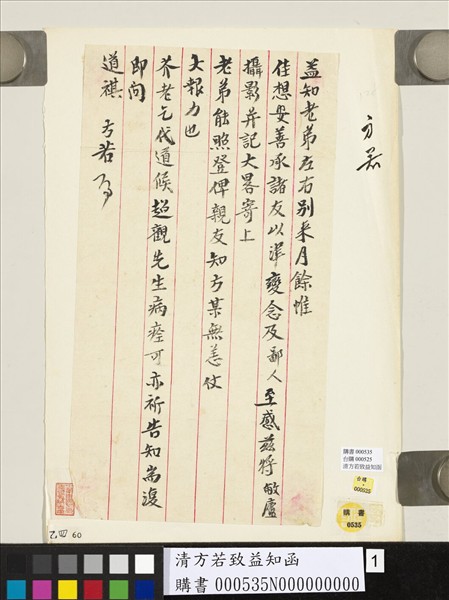 方若
益知老弟左右別来月餘惟
佳想安善承諸友以津變念及鄙人至感茲將敝廬
攝影并記大畧寄上
老弟能照登俾親友知方某無恙仗
大報力也
芥老乞代道候超觀先生病痊可亦祈告知耑復
即問
道祺 方若
購書 000535
台購 000525
清方若致益知函
台購
000525
購書
0535
乙四 60
清方若致益知函
購書 000535N000000000
1